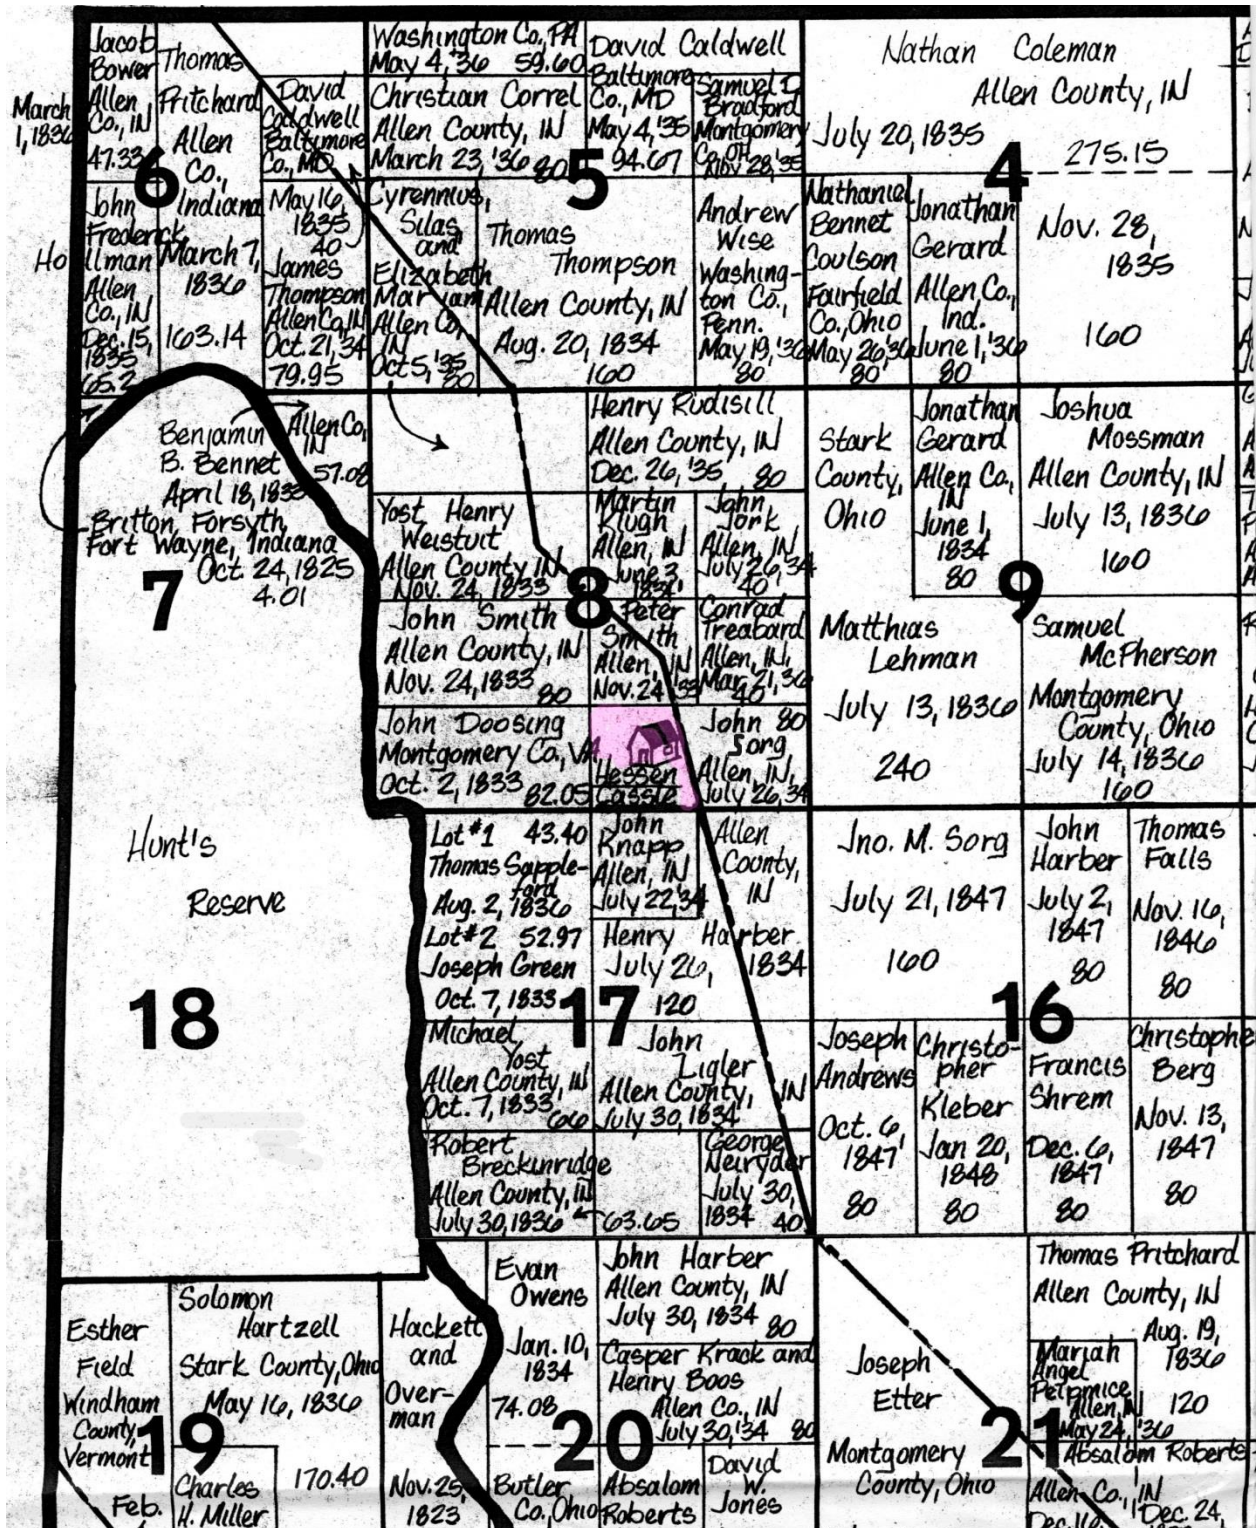 Jacob
Bower
Allen
Co., IN
47.33
March
1, 1836
Thomas
Pritchard
Allen
Co.,
Indiana
March 7,
1836
163.14
6
David
Caldwell
Baltimore
Co., MD
May 16,
1835
40
John
Frederick
Ho llman
Allen
Co., IN
Dec. 15,
1835
65.2
James
Thompson
Allen Co, IN
Oct. 21, 34
79.95
Washington Co., PA
May 4, '36 59.60
Christian Correl
Allen County, IN
March 23, '36 80
5
David Caldwell
Baltimore
Co., MD
May 4, '35
94.67
Samuel D.
Bradford
Montgomery
Co, OH
Nov 28, '35
Cyrennius,
Silas
and
Elizabeth
Mariam
Allen Co,
IN
Oct 5, '35
80
Thomas
Thompson
Allen County, IN
Aug. 20, 1834
160
Andrew
Wise
Washing-
ton Co.,
Penn.
May 19, '36
80
Nathan Coleman
Allen County, IN
July 20, 1835
275.15
4
Nathaniel
Bennet
Coulson
Fairfield
Co., Ohio
May 26, 36
80
Jonathan
Gerard
Allen Co.,
Ind.
June 1, '36
80
Nov. 28,
1835
160
Benjamin
B. Bennet
April 18, 1835
Allen Co,
IN
57.08
Britton, Forsyth,
Fort Wayne, Indiana
Oct. 24, 1825
4.01
7
Henry Rudisill
Allen County, IN
Dec. 26, '35 80
Yost Henry
Weistuit
Allen County IN
Nov. 24, 1833
Martin
Klugh
Allen, IN
June 3,
1834
John
Jork
Allen, IN
July 26, 34
40
8
John Smith
Allen County, IN
Nov. 24, 1833 80
Peter
Smith
Allen, IN
Nov. 24 '33
Conrad
Treabard
Allen, IN.
Mar. 21, 36
40
John Doosing
Montgomery Co., VA
Oct. 2, 1833
82.05
Hessen
Cassle
John 80
Sorg
Allen, IN,
July 26, 34
Stark
County,
Ohio
Jonathan
Gerard
Allen Co.,
IN
June 1,
1834
80
Joshua
Mossman
Allen County, IN
July 13, 1836
160
9
Matthias
Lehman
July 13, 1836
240
Samuel
McPherson
Montgomery
County, Ohio
July 14, 1836
160
Hunt's
Reserve
18
Lot #1 43.40
Thomas Sapple-
ford
Aug. 2, 1836
Lot #2 52.97
Joseph Green
Oct. 7, 1833
John
Knapp
Allen, IN
July 22, 34
Allen
County,
IN
Henry Harber
July 26, 1834
120
17
Michael
Yost
Allen County, IN
Oct. 7, 1833
66
John
Ligler
Allen County, IN
July 30, 1834
Robert
Breckinridge
Allen County, IN
July 30, 1836
63.65
George
Neiryder
July 30,
1834 40
Jno. M. Sorg
July 21, 1847
160
John
Harber
July 2,
1847
80
Thomas
Falls
Nov. 16,
1846
80
16
Joseph
Andrews
Oct. 6,
1847
80
Christo-
pher
Kleber
Jan 20,
1848
80
Francis
Shrem
Dec. 6,
1847
80
Christophe
Berg
Nov. 13,
1847
80
Esther
Field
Windham
County,
Vermont
Feb.
19
Solomon
Hartzell
Stark County, Ohio
May 16, 1836
170.40
Charles
H. Miller
Hackett
and
Over-
man
Nov. 25,
1823
Evan
Owens
Jan. 10,
1834
74.08
Butler
Co., Ohio
20
John Harber
Allen County, IN
July 30, 1834
80
Casper Krack and
Henry Boos
Allen Co., IN
July 30, '34 80
Absalom
Roberts
David
W.
Jones
Joseph
Etter
Montgomery
County, Ohio
21
Thomas Pritchard
Allen County, IN
Aug. 19,
1836
120
Mariah
Angel
Petomice
Allen, IN
May 24, '36
Absalom Roberts
Allen Co., IN
Dec. 24,